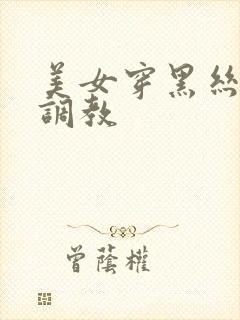 美女穿黑絲
調教
曾蔭權